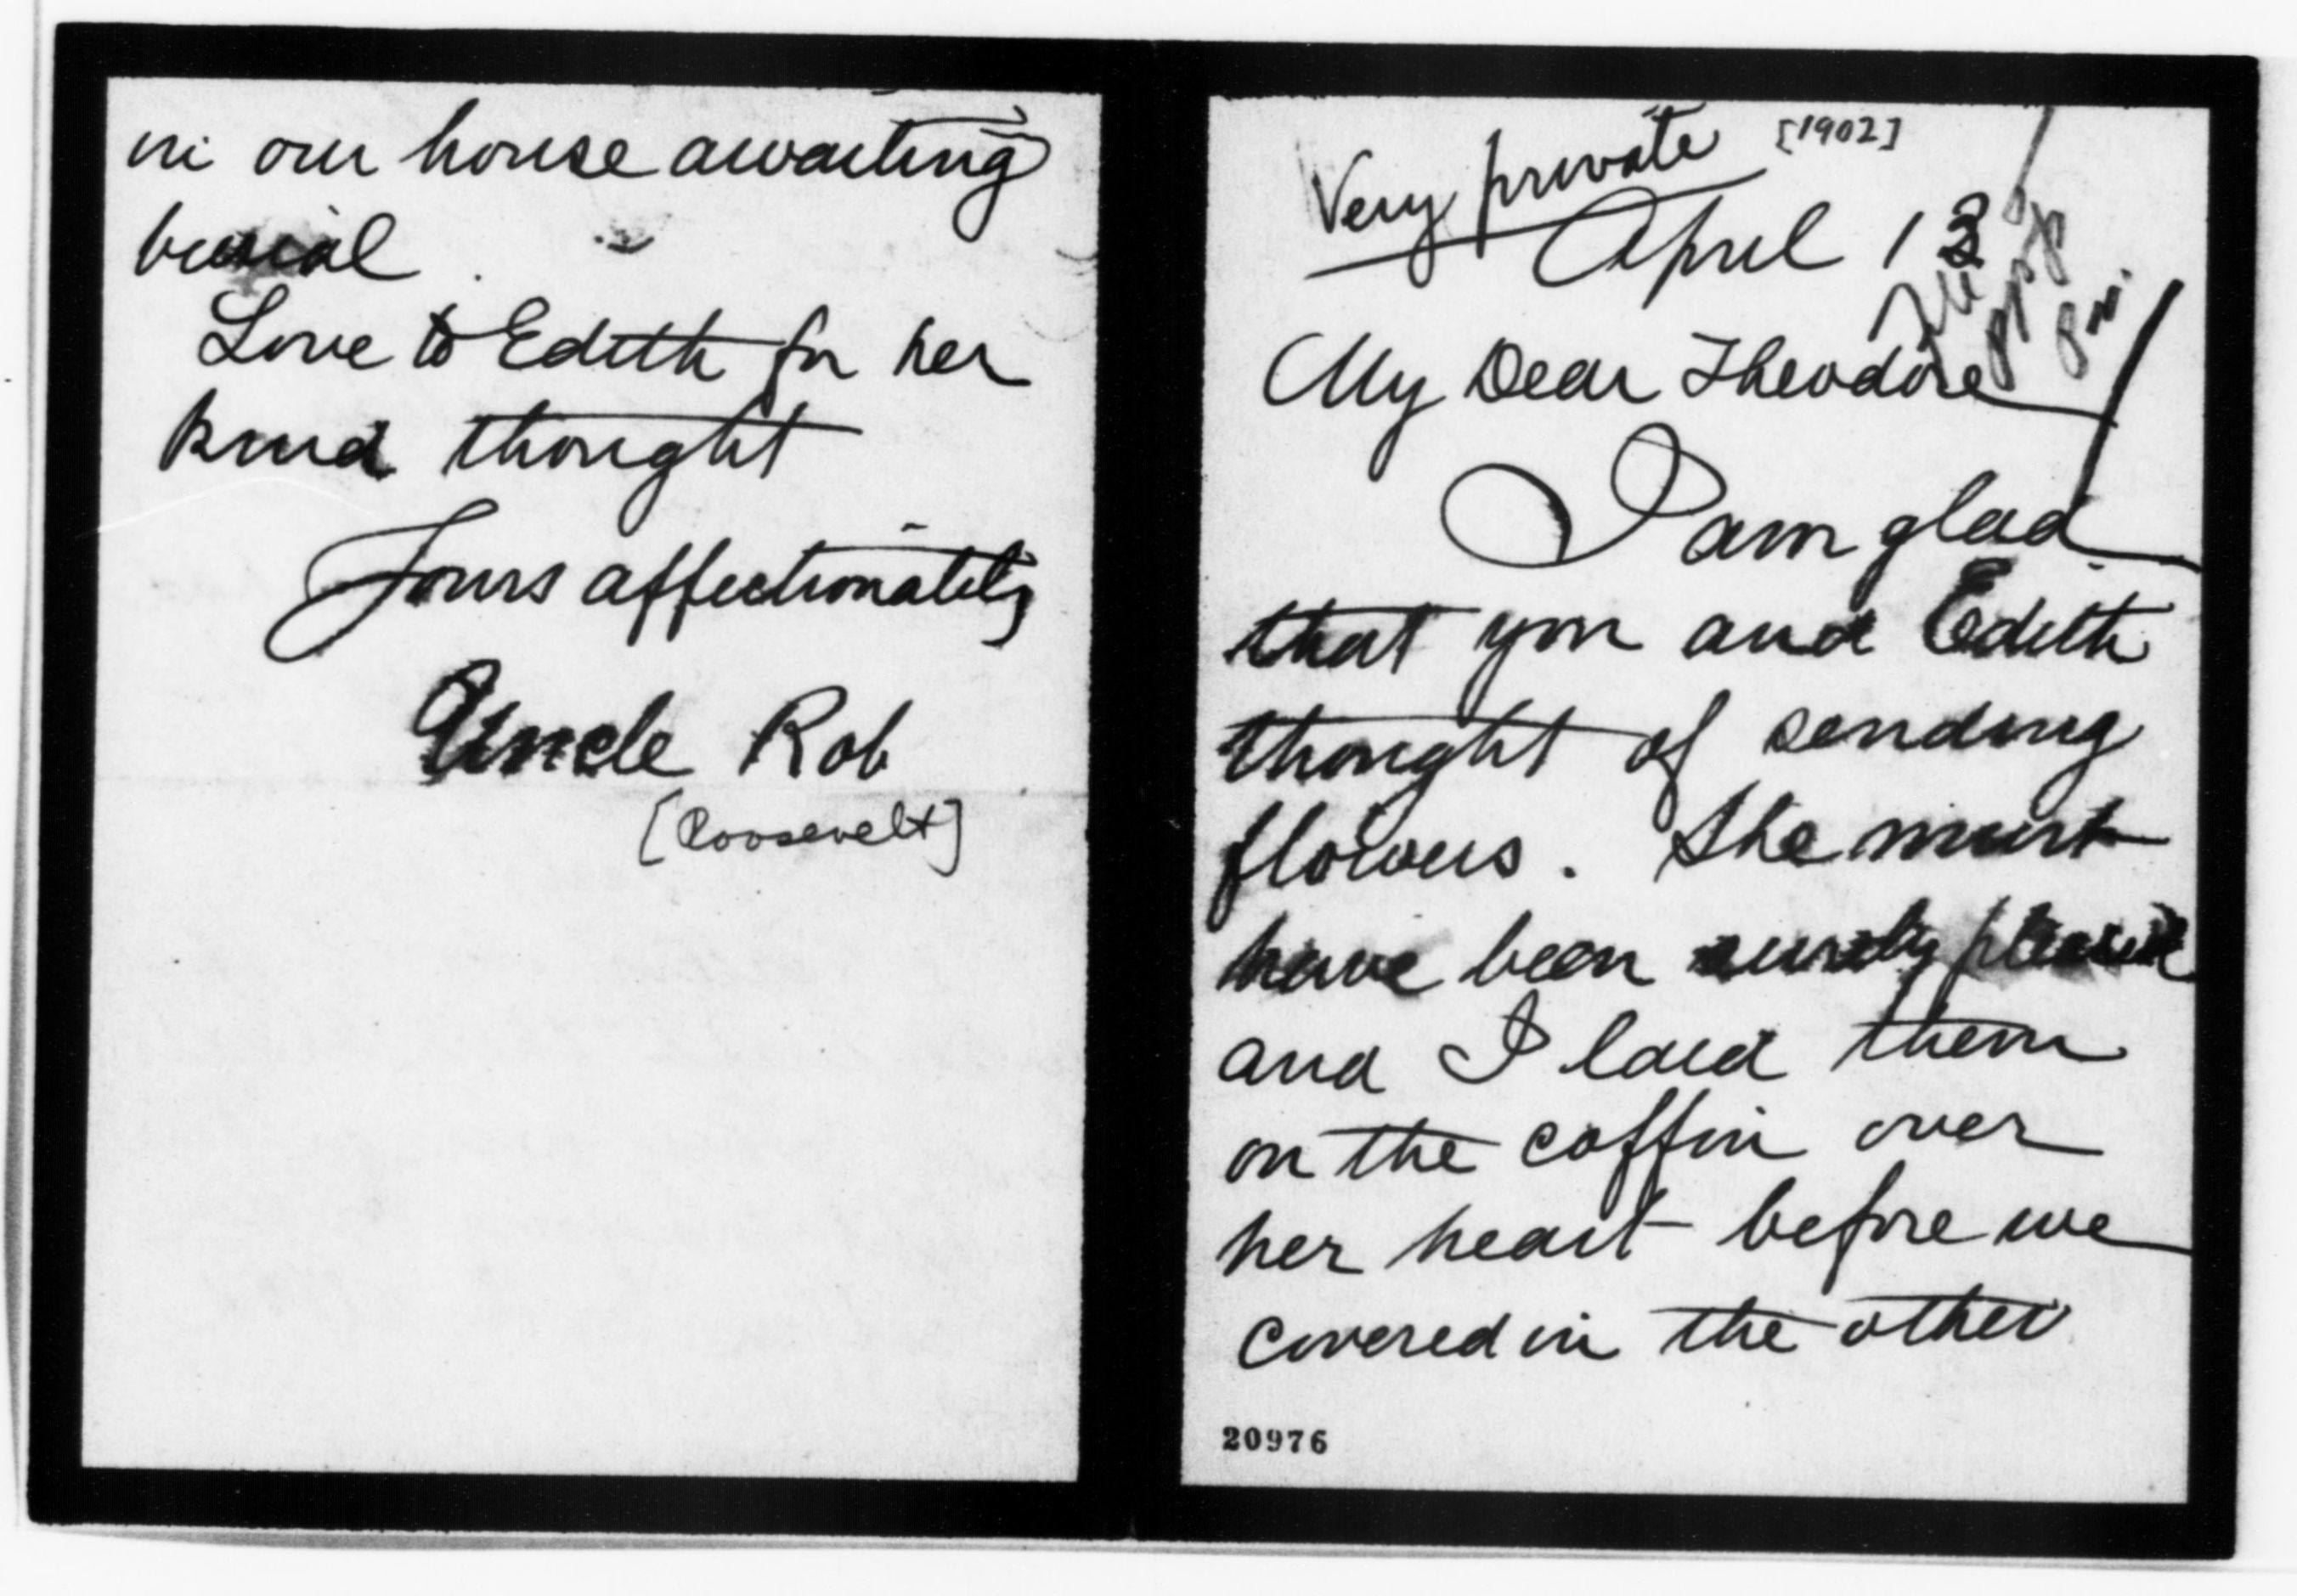 Very private [1902]
April 13
File
ppf
Pm.
My Dear Theodore
I am glad
that you and Edith
thought of sending
flowers. She must
have been surely pleased
and I laid them
on the coffin over
her heart before we
covered in the other
20976
in our house awaiting
burial.
Love to Edith for her
kind thought
Yours affectionately
Uncle Rob
[Roosevelt]